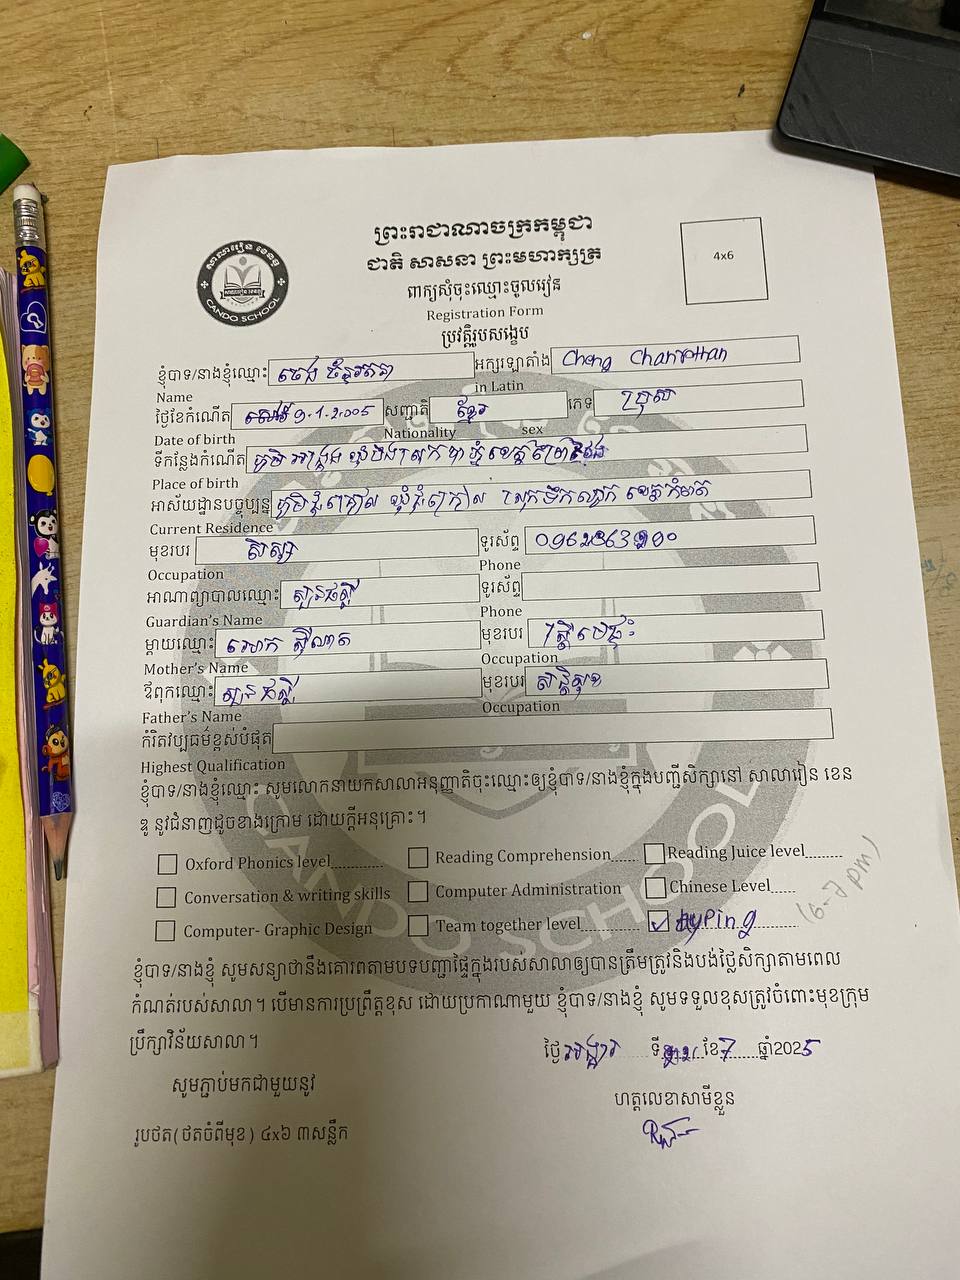 សាលារៀន ខេនឌូ
CANDO SCHOOL
ព្រះរាជាណាចក្រកម្ពុជា
ជាតិ សាសនា ព្រះមហាក្សត្រ
4x6
ពាក្យសុំចុះឈ្មោះចូលរៀន
Registration Form
ប្រវត្តិរូបសង្ខេប
ខ្ញុំបាទ/នាងខ្ញុំឈ្មោះ ចេង ច័ន្ទរតនា អក្សរឡាតាំង Cheng Chanrothan
Name in Latin
ថ្ងៃខែកំណើត 9.1.2005 សញ្ជាតិ ខ្មែរ ភេទ ប្រុស
Date of birth Nationality sex
ទីកន្លែងកំណើត ភូមិ
Place of birth
អាស័យដ្ឋានបច្ចុប្បន្ន ភូមិជុំគ្រៀល ឃុំជុំគ្រៀល ស្រុកទឹកឈូ ខេត្តកំពត
Current Residence
មុខរបរ សិស្ស ទូរស័ព្ទ
Occupation Phone
អាណាព្យាបាលឈ្មោះ ទូរស័ព្ទ
Guardian's Name Phone
ម្តាយឈ្មោះ មុខរបរ ស្ត្រីមេផ្ទះ
Mother's Name Occupation
ឪពុកឈ្មោះ មុខរបរ សន្តិសុខ
Father's Name Occupation
កំរិតវប្បធម៌ខ្ពស់បំផុត
Highest Qualification
ខ្ញុំបាទ/នាងខ្ញុំឈ្មោះ សូមលោកនាយកសាលាអនុញ្ញាតិចុះឈ្មោះឲ្យខ្ញុំបាទ/នាងខ្ញុំក្នុងបញ្ជីសិក្សានៅ សាលារៀន ខេន
ឌូ នូវជំនាញដូចខាងក្រោម ដោយក្តីអនុគ្រោះ។
Oxford Phonics level............ Reading Comprehension...... Reading Juice level........
Conversation & writing skills Computer Administration Chinese Level..... (6-7 pm)
Computer- Graphic Design Team together level............. typing
ខ្ញុំបាទ/នាងខ្ញុំ សូមសន្យាថានឹងគោរពតាមបទបញ្ជាផ្ទៃក្នុងរបស់សាលាឲ្យបានត្រឹមត្រូវនិងបង់ថ្លៃសិក្សាតាមពេល
កំណត់របស់សាលា។ បើមានការប្រព្រឹត្តខុស ដោយប្រកាណាមួយ ខ្ញុំបាទ/នាងខ្ញុំ សូមទទួលខុសត្រូវចំពោះមុខក្រុម
ប្រឹក្សាវិន័យសាលា។
ថ្ងៃ អង្គារ ទី ខែ 7 ឆ្នាំ2025
សូមភ្ជាប់មកជាមួយនូវ
ហត្ថលេខាសាមីខ្លួន
រូបថត(ថតចំពីមុខ) ៤x៦ ៣សន្លឹក